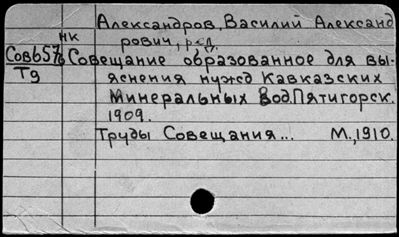 Александров, Василий Александ
рович, ред.
нк
Сов657б Совещание образованное для вы-
Т9 яснения нужд Кавказских
Минеральных Вод. Пятигорск.
1909.
Труды Совещания... М., 1910.